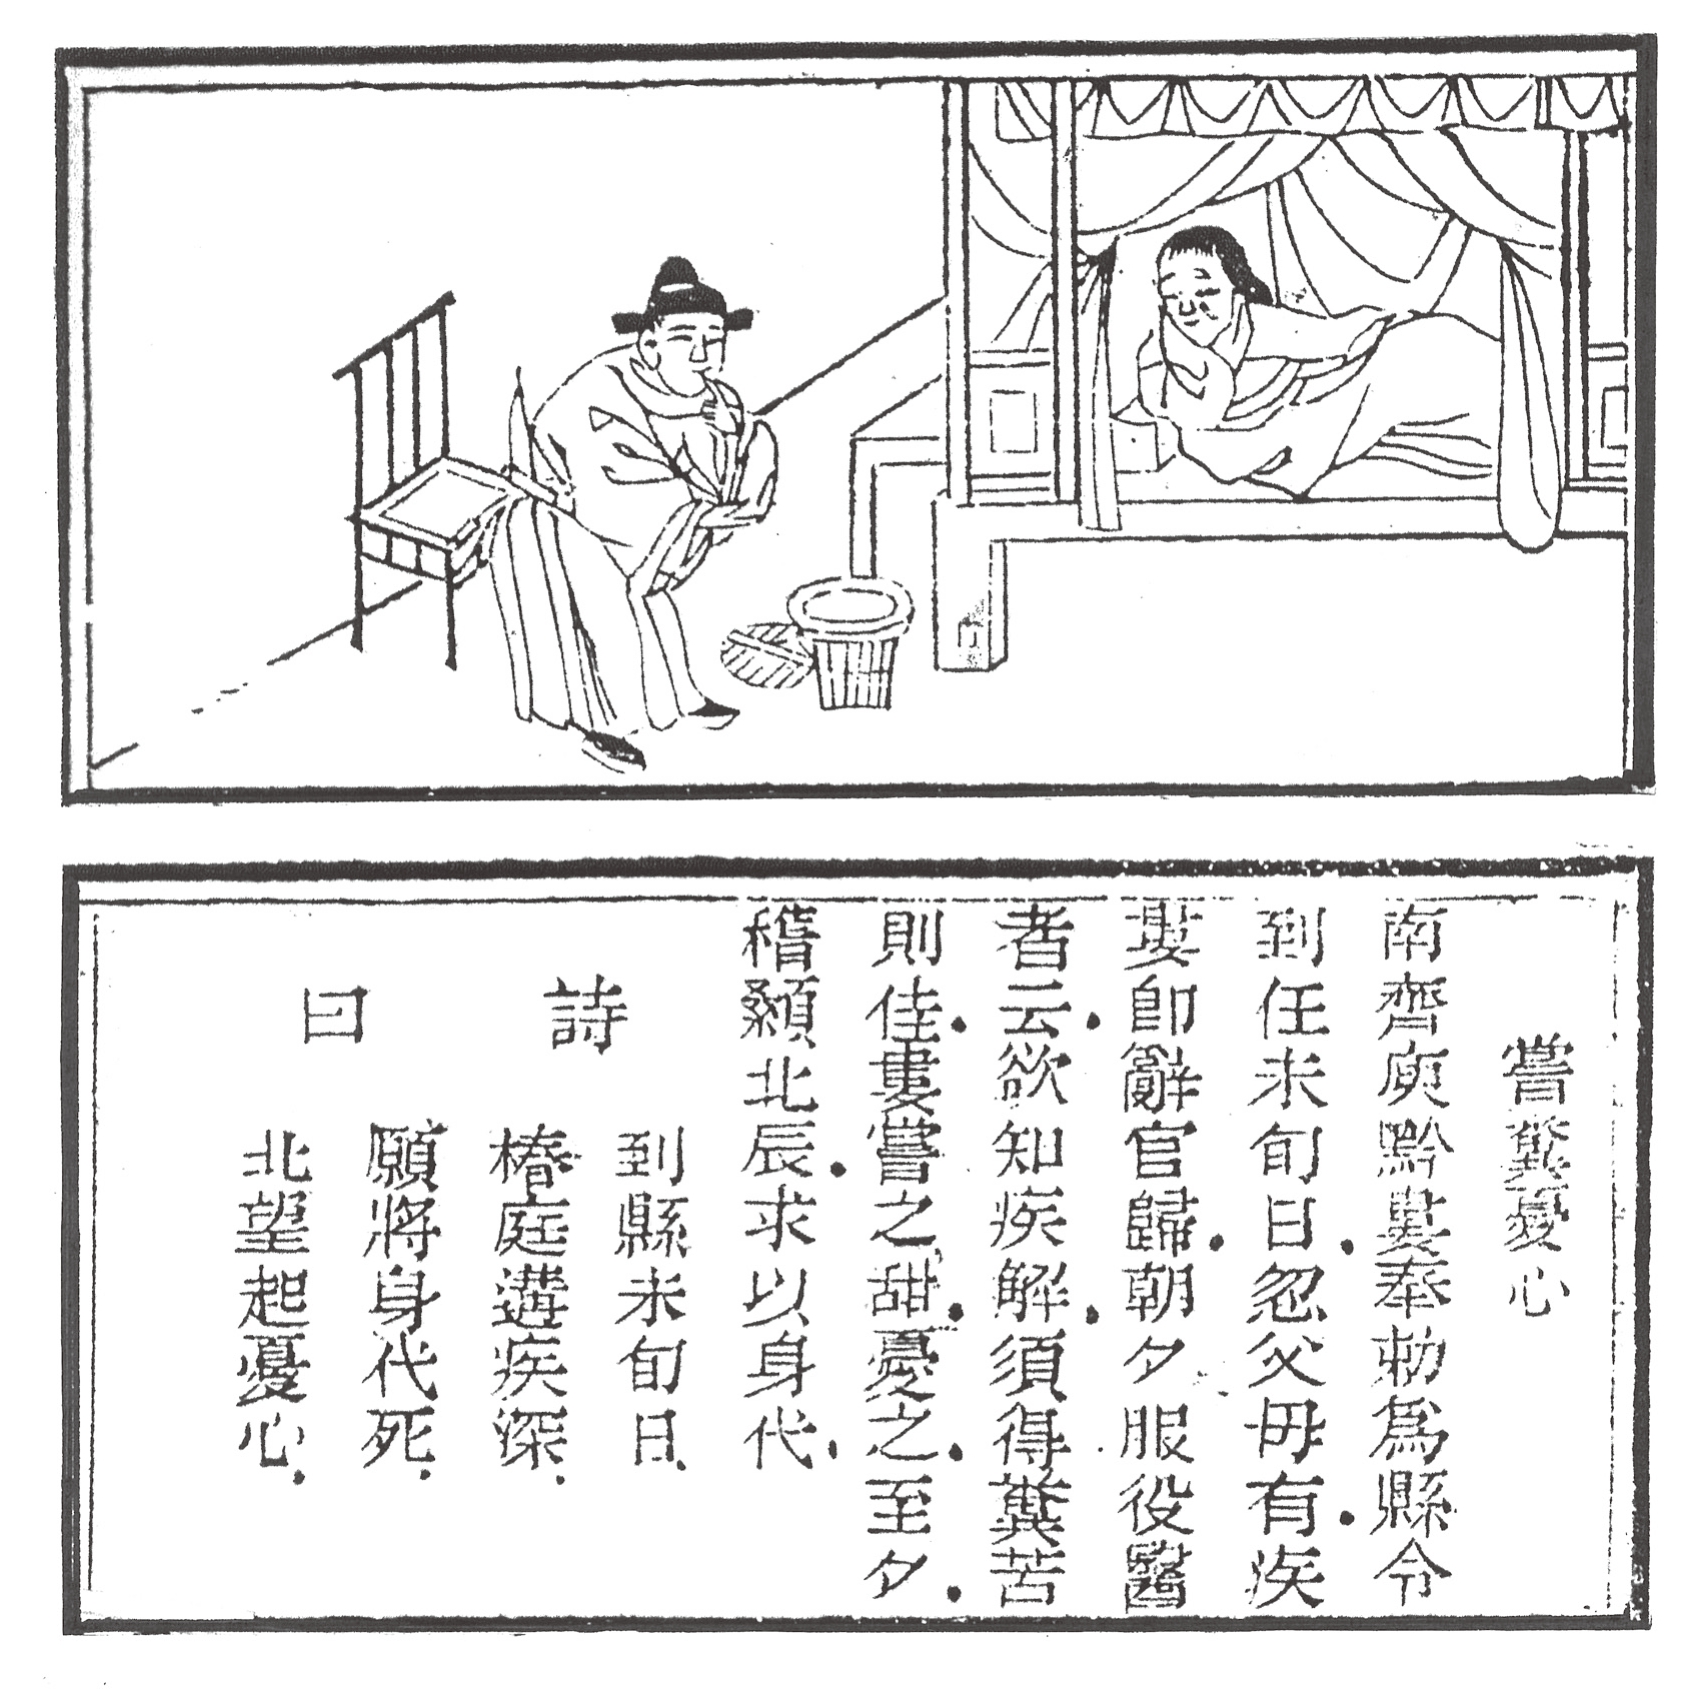 嘗糞憂心
南齊庾黔婁奉勅爲縣令
到任未旬日忽父母有疾
婁卽辭官歸朝夕服役醫
者云欲知疾解須得糞苦
則佳婁嘗之甜憂之至夕
稽顙北辰求以身代
詩曰
到縣未旬日
椿庭遘疾深
願將身代死
北望起憂心